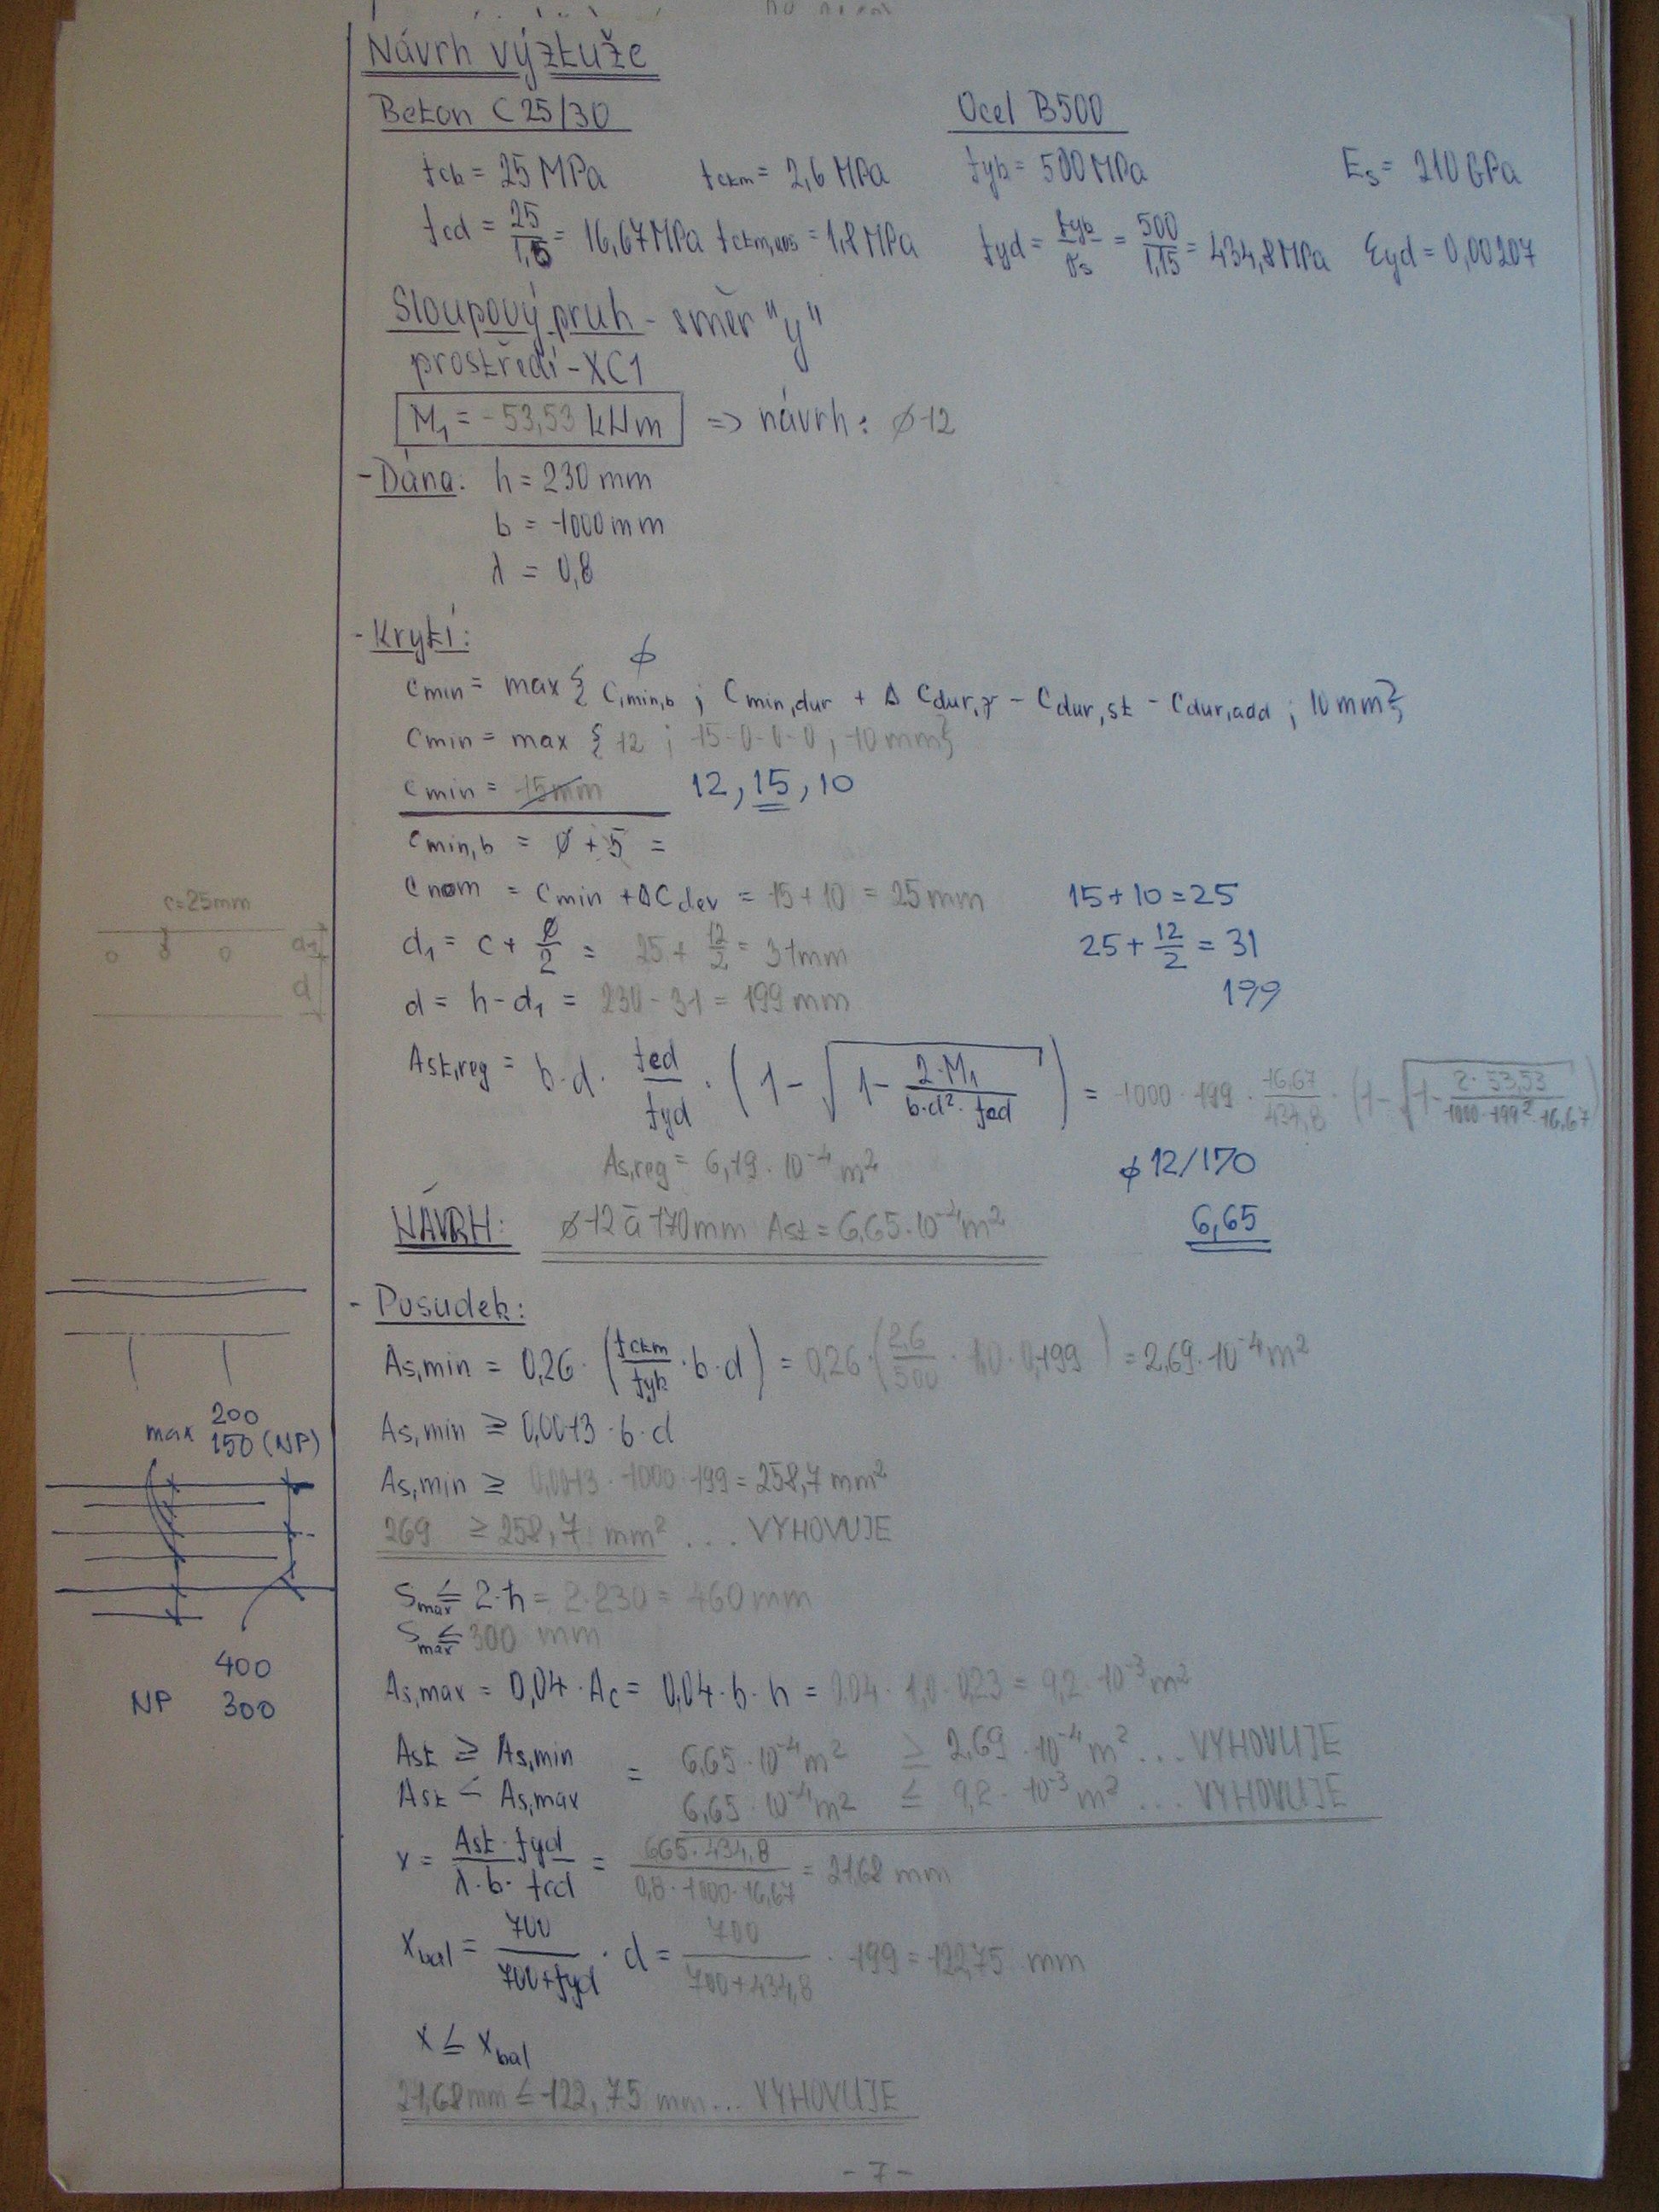 Návrh výztuže
Beton C 25/30 Ocel B500
fck = 25 MPa fctm = 2,6 MPa fyk = 500 MPa Es = 210 GPa
fcd = 25/1,5 = 16,67 MPa fctm,005 = 1,8 MPa fyd = fyk/γs = 500/1,15 = 434,8 MPa εyd = 0,00207
Sloupový pruh - směr "y"
prostředí - XC1
M1 = -53,53 kNm => návrh: ϕ 12
- Dána: h = 230 mm
b = 1000 mm
λ = 0,8
- Krytí:
ϕ
cmin = max { cmin,b ; cmin,dur + Δ cdur,γ - cdur,st - cdur,add ; 10 mm }
cmin = max { 12 ; 15-0-0-0 ; 10 mm }
cmin = 15 mm 12, 15, 10
cmin,b = ϕ + 5 =
cnom = cmin + Δcdev = 15 + 10 = 25 mm 15 + 10 = 25
c=25mm
d1 = c + ϕ/2 = 25 + 12/2 = 31 mm 25 + 12/2 = 31
d1
d
d = h - d1 = 230 - 31 = 199 mm 199
Ast,reg = b·d · fcd/fyd · (1 - √(1 - 2·M1/(b·d²·fcd))) = 1000 · 199 · 16,67/434,8 · (1 - √(1 - 2·53,53/(1000·199²·16,67)))
As,reg = 6,19 · 10⁻⁴ m² ϕ 12/170
NÁVRH: ϕ 12 ā 170 mm Ast = 6,65 · 10⁻⁴ m² 6,65
- Posudek:
As,min = 0,26 · (fctm/fyk · b · d) = 0,26 · (2,6/500 · 1,0 · 0,199) = 2,69 · 10⁻⁴ m²
As,min ≥ 0,0013 · b · d
As,min ≥ 0,0013 · 1000 · 199 = 258,7 mm²
269 ≥ 258,7 mm² ... VYHOVUJE
max 200
150 (NP)
smax ≤ 2·h = 2·230 = 460 mm
smax ≤ 300 mm
400
NP 300
As,max = 0,04 · Ac = 0,04 · b · h = 0,04 · 1,0 · 0,23 = 9,2 · 10⁻³ m²
Ast ≥ As,min = 6,65 · 10⁻⁴ m² ≥ 2,69 · 10⁻⁴ m² ... VYHOVUJE
Ast ≤ As,max 6,65 · 10⁻⁴ m² ≤ 9,2 · 10⁻³ m² ... VYHOVUJE
x = Ast · fyd/(λ · b · fcd) = 665 · 434,8/(0,8 · 1000 · 16,67) = 21,68 mm
xbal = 700/(700+fyd) · d = 700/(700+434,8) · 199 = 122,75 mm
x ≤ xbal
21,68 mm ≤ 122,75 mm ... VYHOVUJE
- 7 -